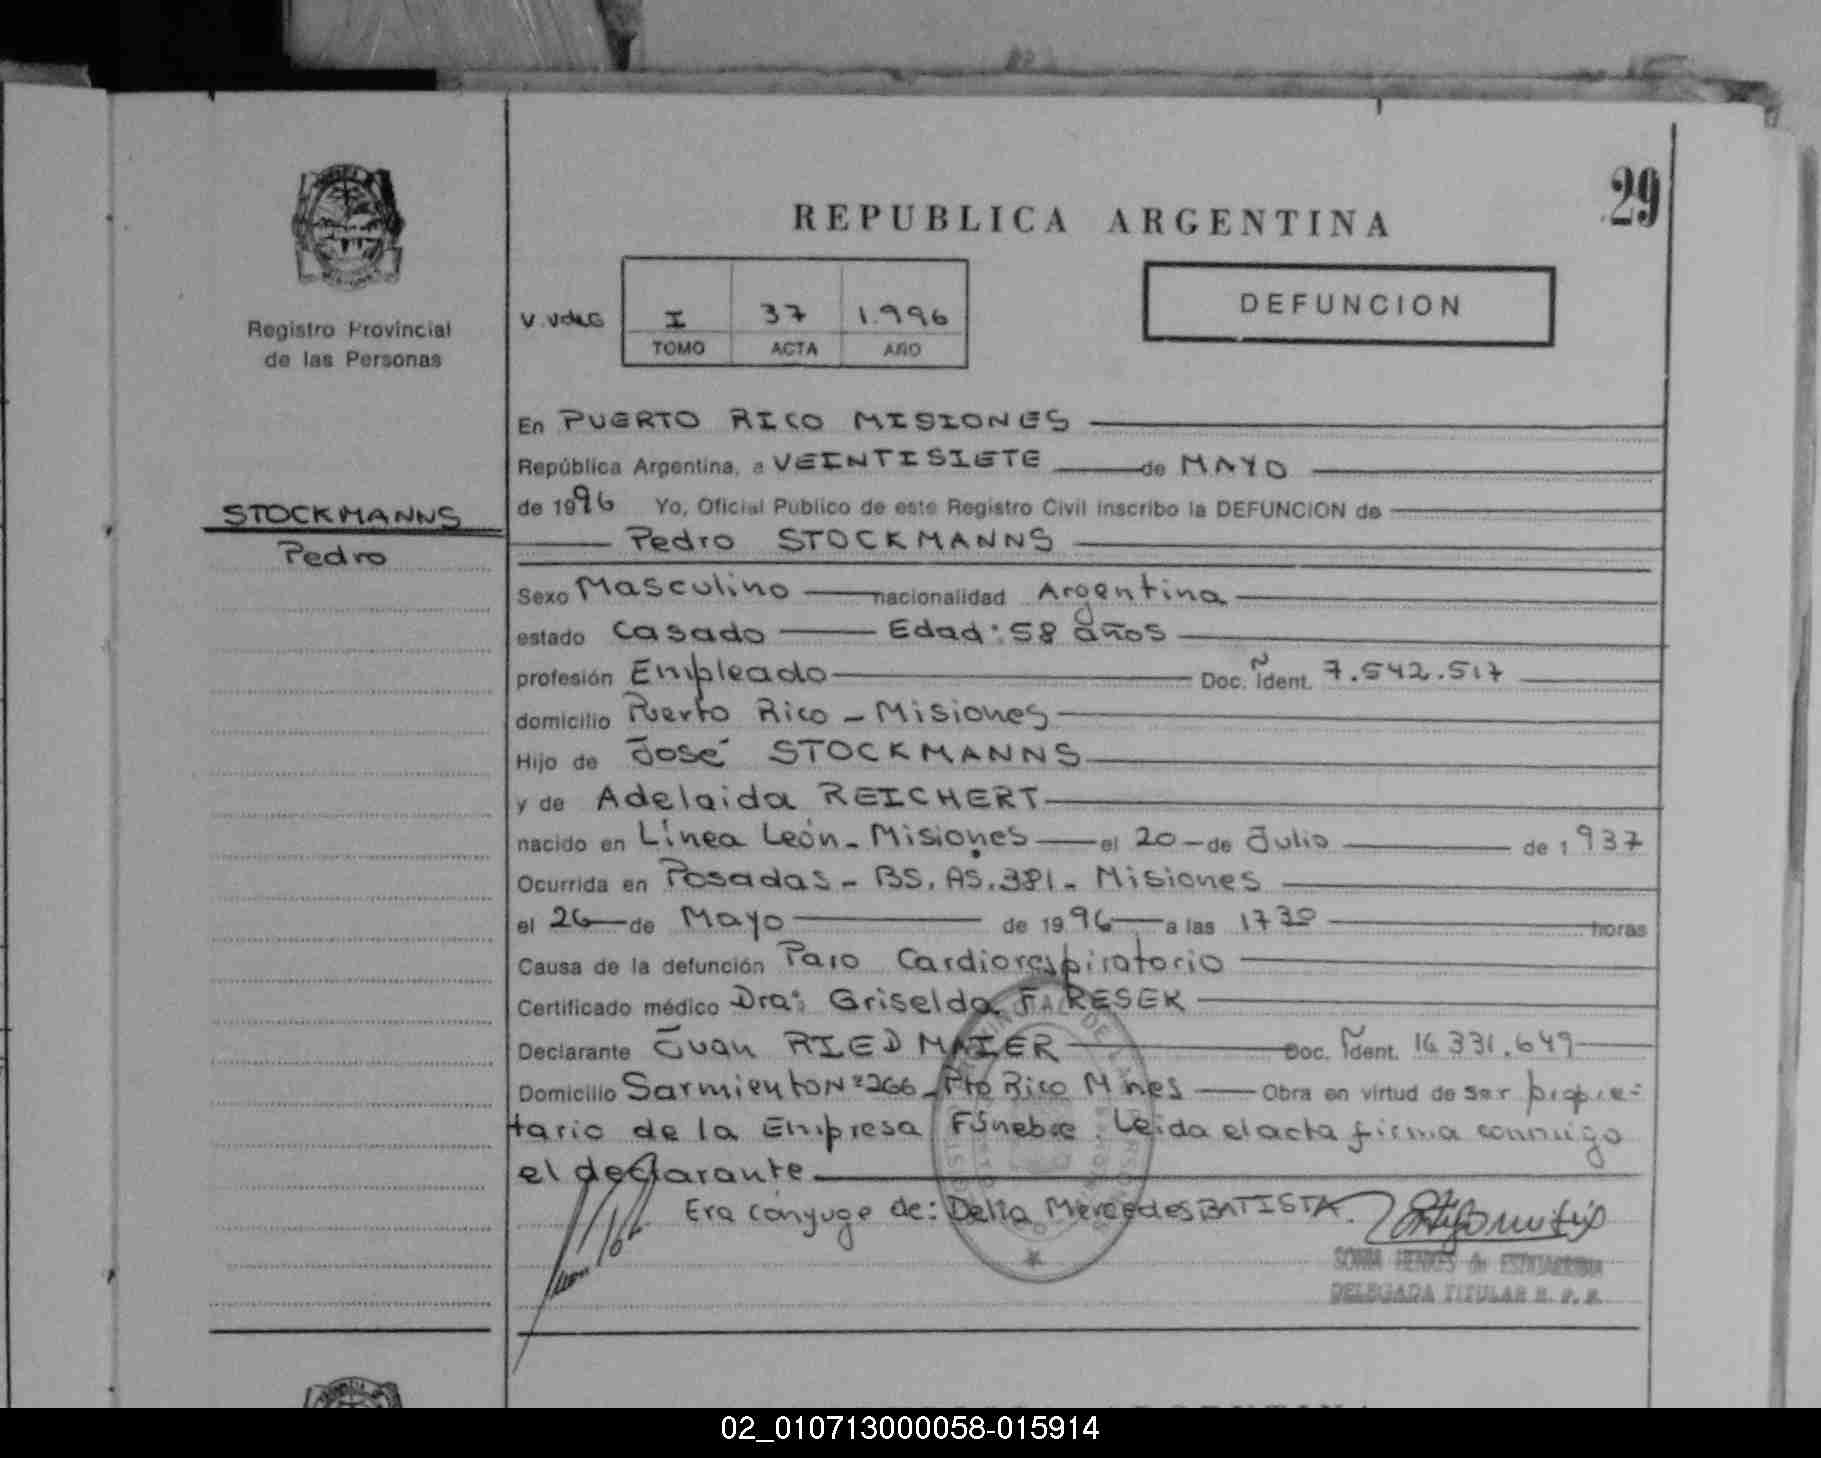 29
REPUBLICA ARGENTINA
DEFUNCION
I 37 1.996
TOMO ACTA AÑO
Registro Provincial
de las Personas
STOCKMANNS
Pedro
En PUERTO RICO MISIONES
República Argentina, a VEINTISIETE de MAYO
de 1996 Yo, Oficial Publico de este Registro Civil inscribo la DEFUNCION de
Pedro STOCKMANNS
Sexo Masculino nacionalidad Argentina
estado Casado Edad: 58 años
profesión Empleado Doc. Ident. 7.542.517
domicilio Puerto Rico - Misiones
Hijo de José STOCKMANNS
y de Adelaida REICHERT
nacido en Línea León - Misiones el 20 de Julio de 1937
Ocurrida en Posadas - BS. AS. 381 - Misiones
el 26 de Mayo de 1996 a las 17 30 horas
Causa de la defunción Paro Cardiorespiratorio
Certificado médico Dra: Griselda F. RESEK
Declarante Juan RIEDMAIER Doc. Ident. 16.331.649
Domicilio Sarmiento Nº 266 - Pto Rico Mnes Obra en virtud de ser propie-
tario de la Empresa Fúnebre. Leida el acta firma conmigo
el declarante
Era cónyuge de: Delia Mercedes BATISTA.
DELEGADA TITULAR R. P. P.
02_010713000058-015914